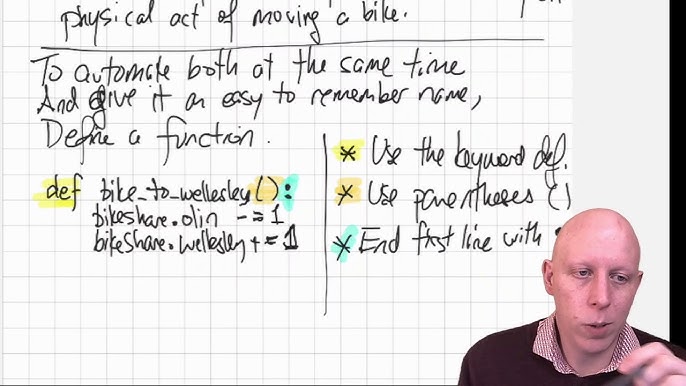 physical act of moving a bike.
To automate both at the same time
And give it an easy to remember name,
Define a function.
def bike_to_wellesley():
bikeshare.olin -= 1
bikeshare.wellesley += 1
* Use the keyword def.
* Use parentheses ()
* End first line with